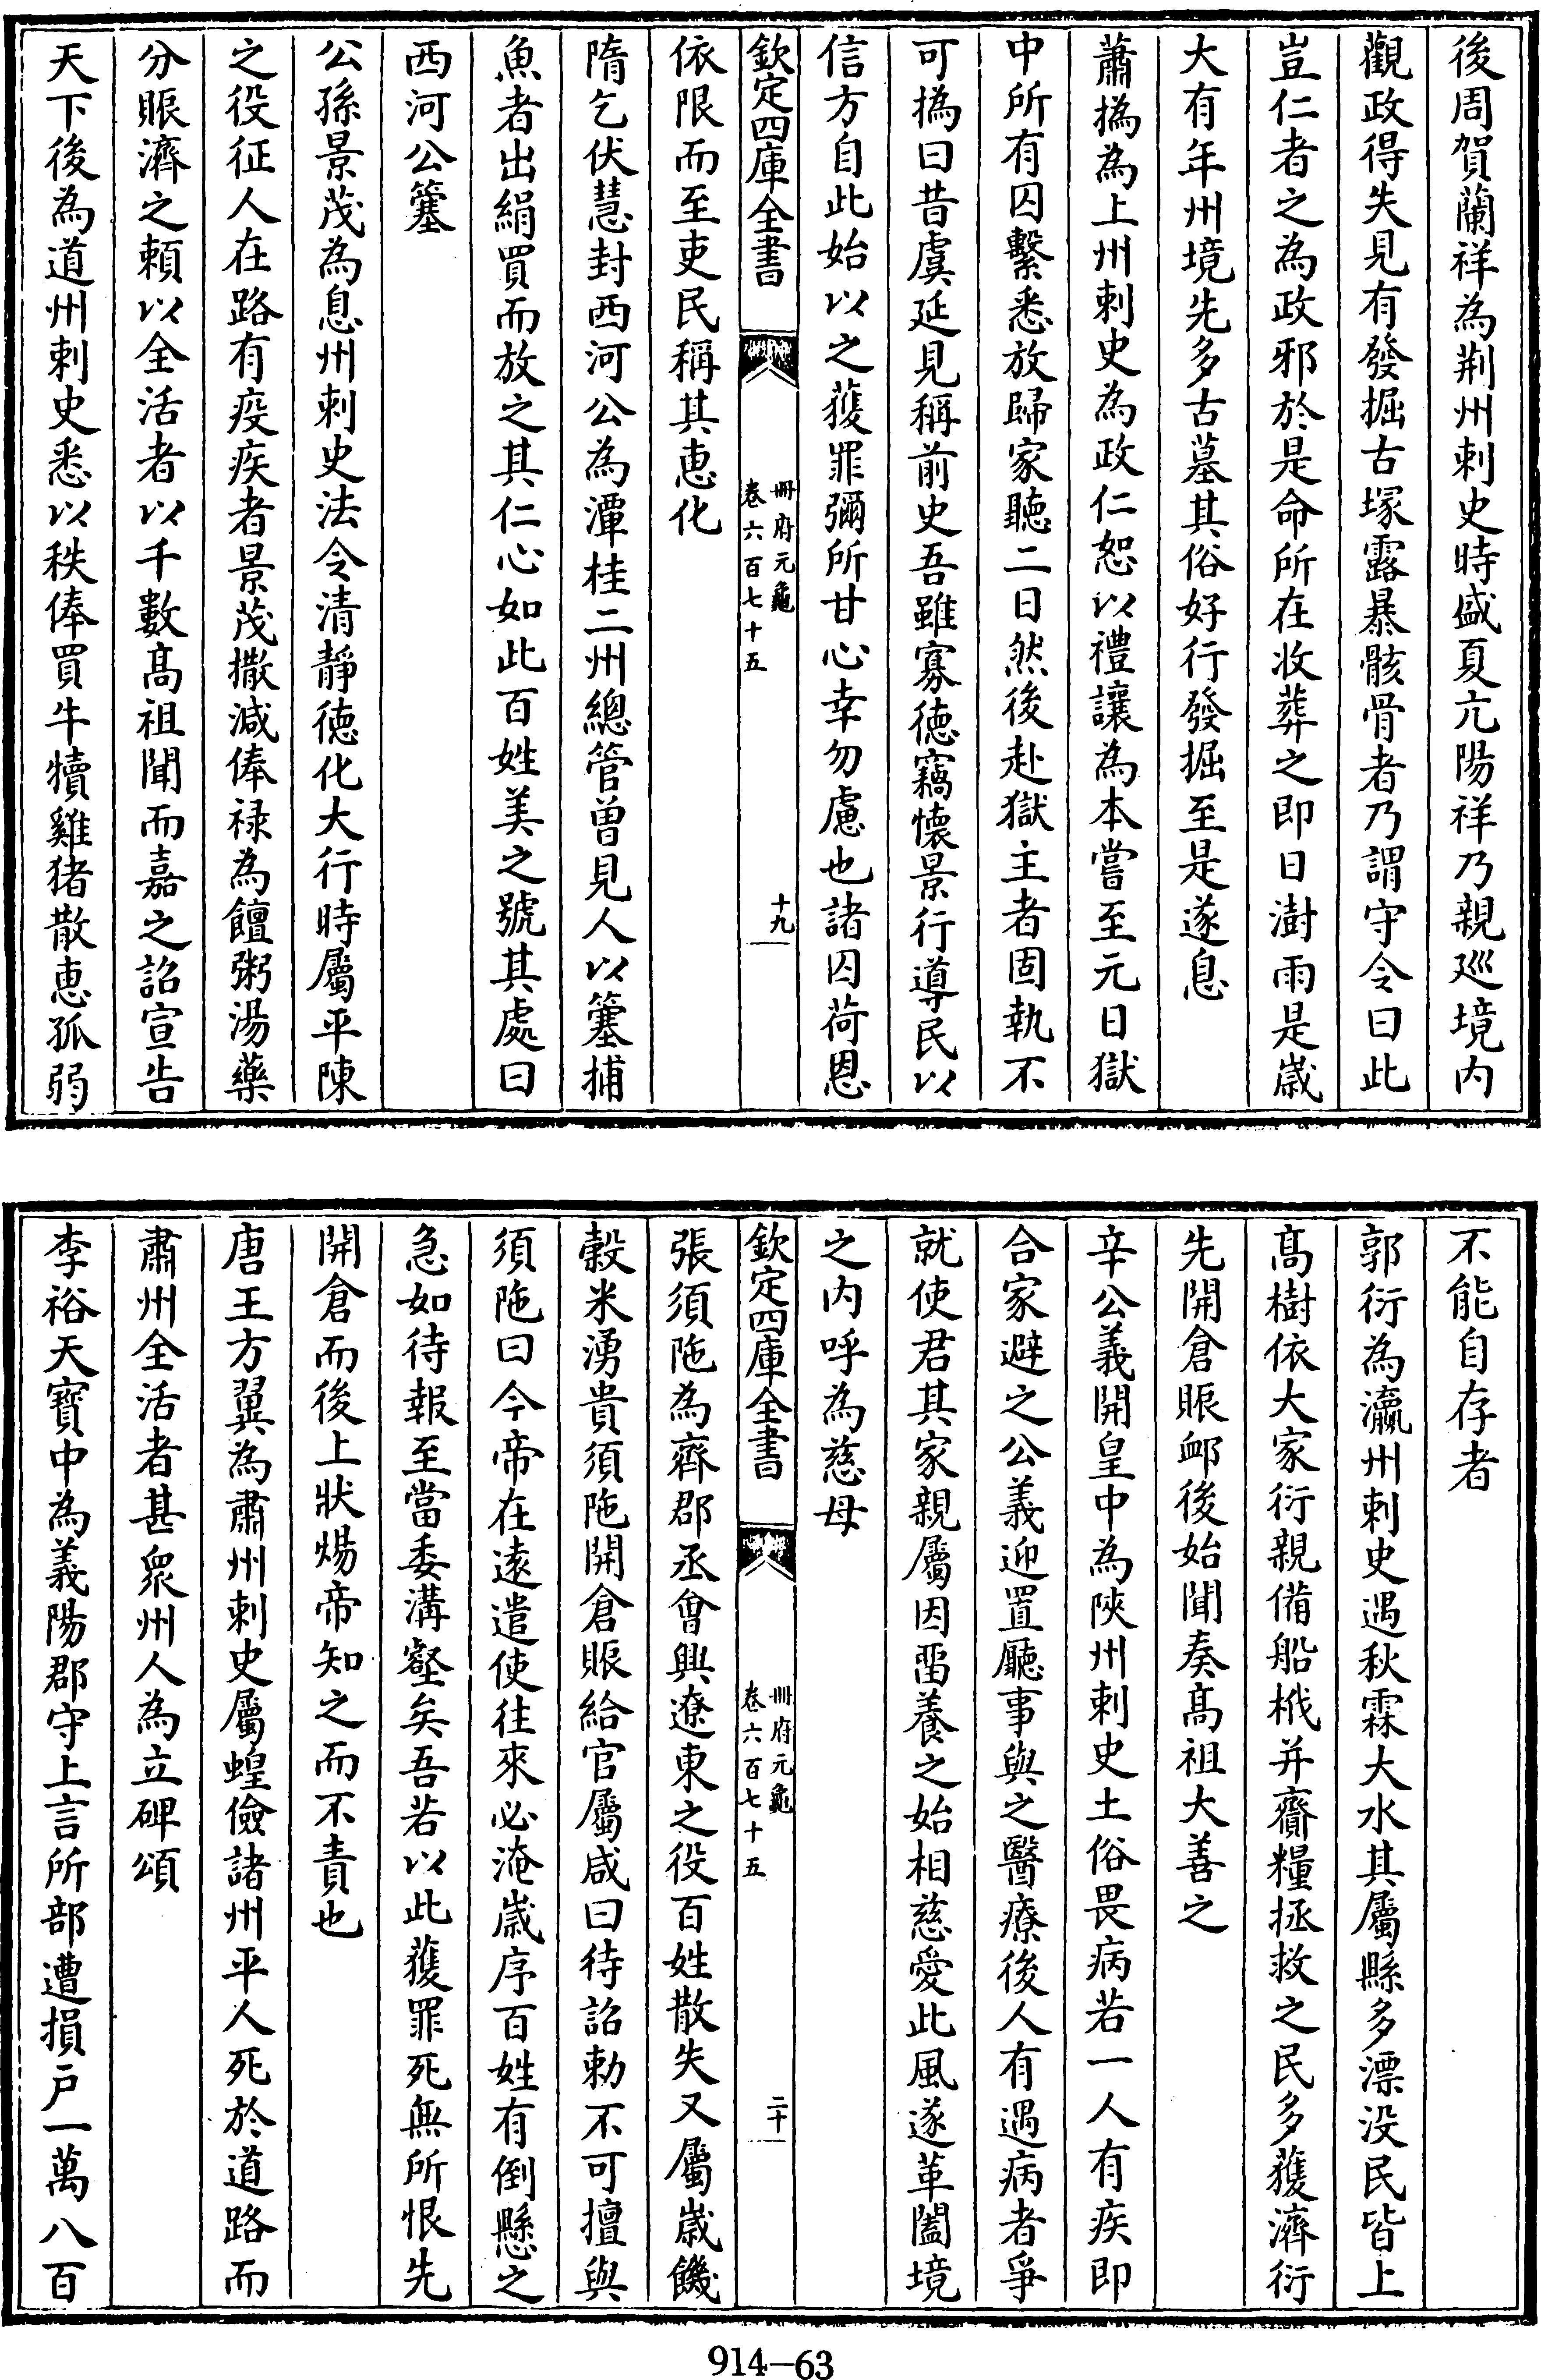 後周賀蘭祥為荆州刺史時盛夏亢陽祥乃親廵境内
觀政得失見有發掘古塚露暴骸骨者乃謂守令曰此
豈仁者之為政邪於是命所在收葬之即日澍雨是歳
大有年州境先多古墓其俗好行發掘至是遂息
蕭撝為上州刺史為政仁恕以禮讓為本嘗至元日獄
中所有囚繫悉放歸家聽二日然後赴獄主者固執不
可撝曰昔虞延見稱前史吾雖寡徳竊懐景行導民以
信方自此始以之獲罪彌所甘心幸勿慮也諸囚荷恩
欽定四庫全書
冊府元龜
卷六百七十五
十九
依限而至吏民稱其恵化
隋乞伏慧封西河公為潭桂二州總管曽見人以簺捕
魚者出絹買而放之其仁心如此百姓美之號其處曰
西河公簺
公孫景茂為息州刺史法令清靜徳化大行時屬平陳
之役征人在路有疫疾者景茂撒減俸禄為饘粥湯藥
分賑濟之頼以全活者以千數髙祖聞而嘉之詔宣告
天下後為道州刺史悉以秩俸買牛犢雞猪散恵孤弱
不能自存者
郭衍為瀛州刺史遇秋霖大水其屬縣多漂没民皆上
髙樹依大家衍親備船栰并齎糧拯救之民多獲濟衍
先開倉賑䘏後始聞奏髙祖大善之
辛公義開皇中為陜州刺史土俗畏病若一人有疾即
合家避之公義迎置廳事與之醫療後人有遇病者爭
就使君其家親屬因畱養之始相慈愛此風遂革闔境
之内呼為慈母
欽定四庫全書
冊府元龜
卷六百七十五
二十
張須陁為齊郡丞會興遼東之役百姓散失又屬歳饑
穀米湧貴須陁開倉賑給官屬咸曰待詔勅不可擅與
須陁曰今帝在逺遣使往來必淹歳序百姓有倒懸之
急如待報至當委溝壑矣吾若以此獲罪死無所恨先
開倉而後上狀煬帝知之而不責也
唐王方翼為肅州刺史屬蝗儉諸州平人死於道路而
肅州全活者甚衆州人為立碑頌
李裕天寳中為義陽郡守上言所部遭損戸一萬八百
914—63